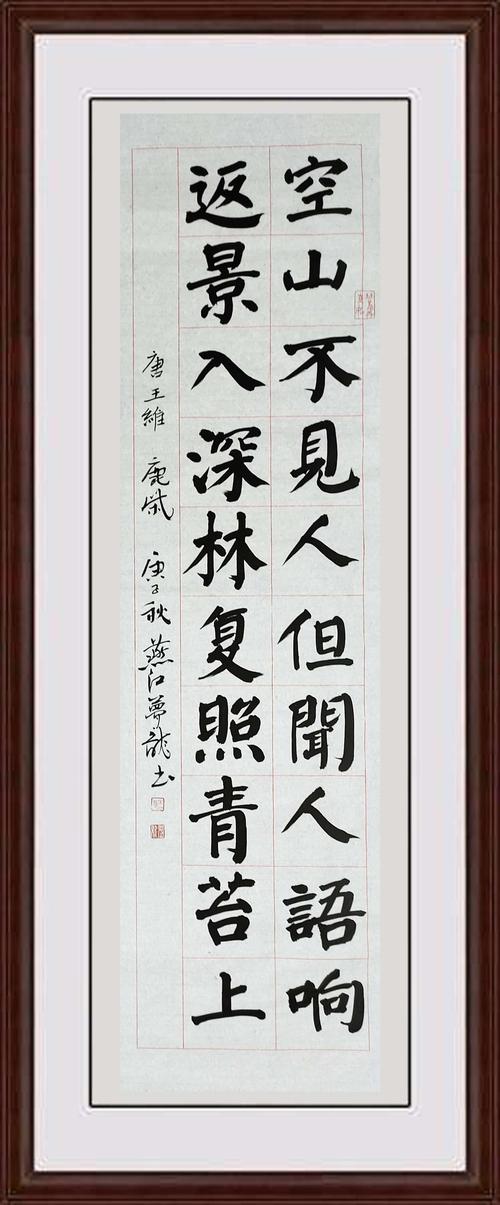 空山不見人但聞人語响
返景入深林复照青苔上
唐王維 鹿柴 庚子秋 燕江夢龍书